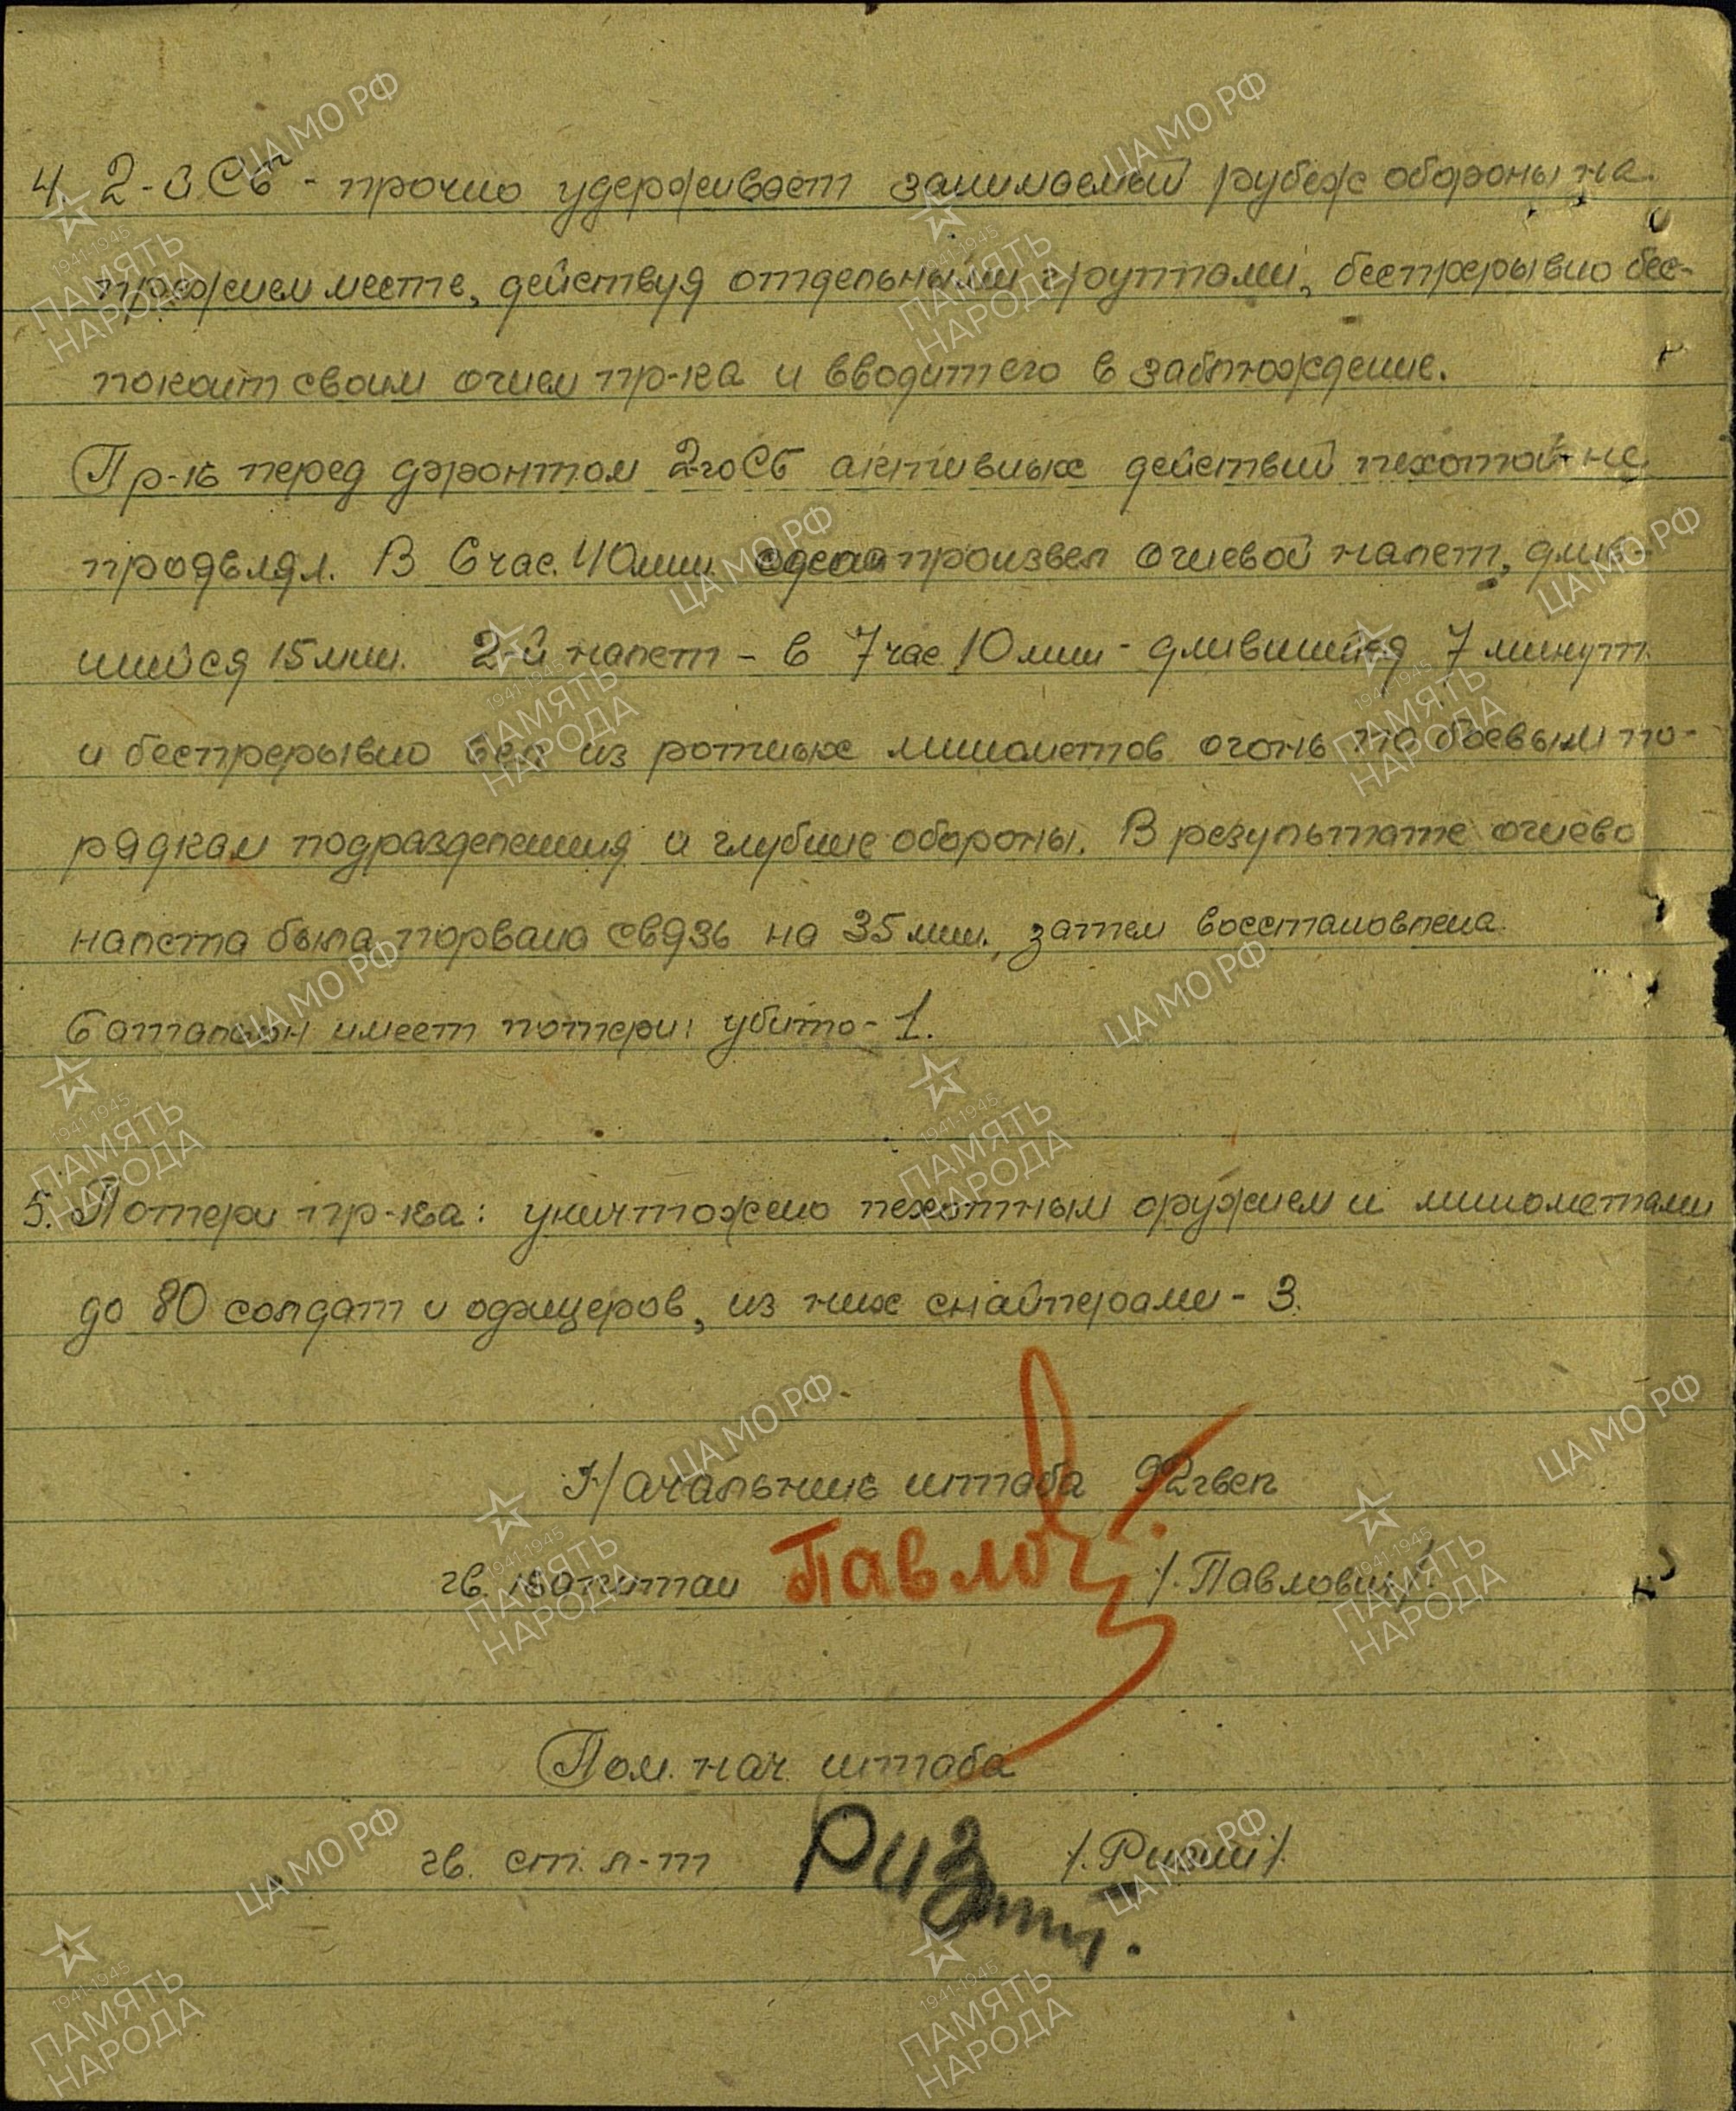 4. 2-й СБ - прочно удерживает занимаемый рубеж обороны на
прежнем месте, действуя отдельными группами, беспрерывно бес-
покоит своим огнем пр-ка и вводит его в заблюждение.
Пр-к перед фронтом 2-го СБ активных действий пехотой не
проявлял. В 6 час. 40 мин. произвел огневой налет, длив-
шийся 15 мин. 2-й налет - в 7 час 10 мин - длившийся 7 минут
и беспрерывно вел из ротных минометов огонь по боевым по-
рядкам подразделения и глубине обороны. В результате огнево
налета была порвана связь на 35 мин., затем восстановлена.
Батальон имеет потери: убито - 1.
5. Потери пр-ка: уничтожено пехотным оружием и минометами
до 80 солдат и офицеров, из них снайперами - 3.
Начальник штаба 92 гвсп
гв. капитан Павлов /. Павлович /.
Пом. нач. штаба
гв. ст. л-т /. Ризий /.
ЦА МО РФ
1941-1945
ПАМЯТЬ
НАРОДА